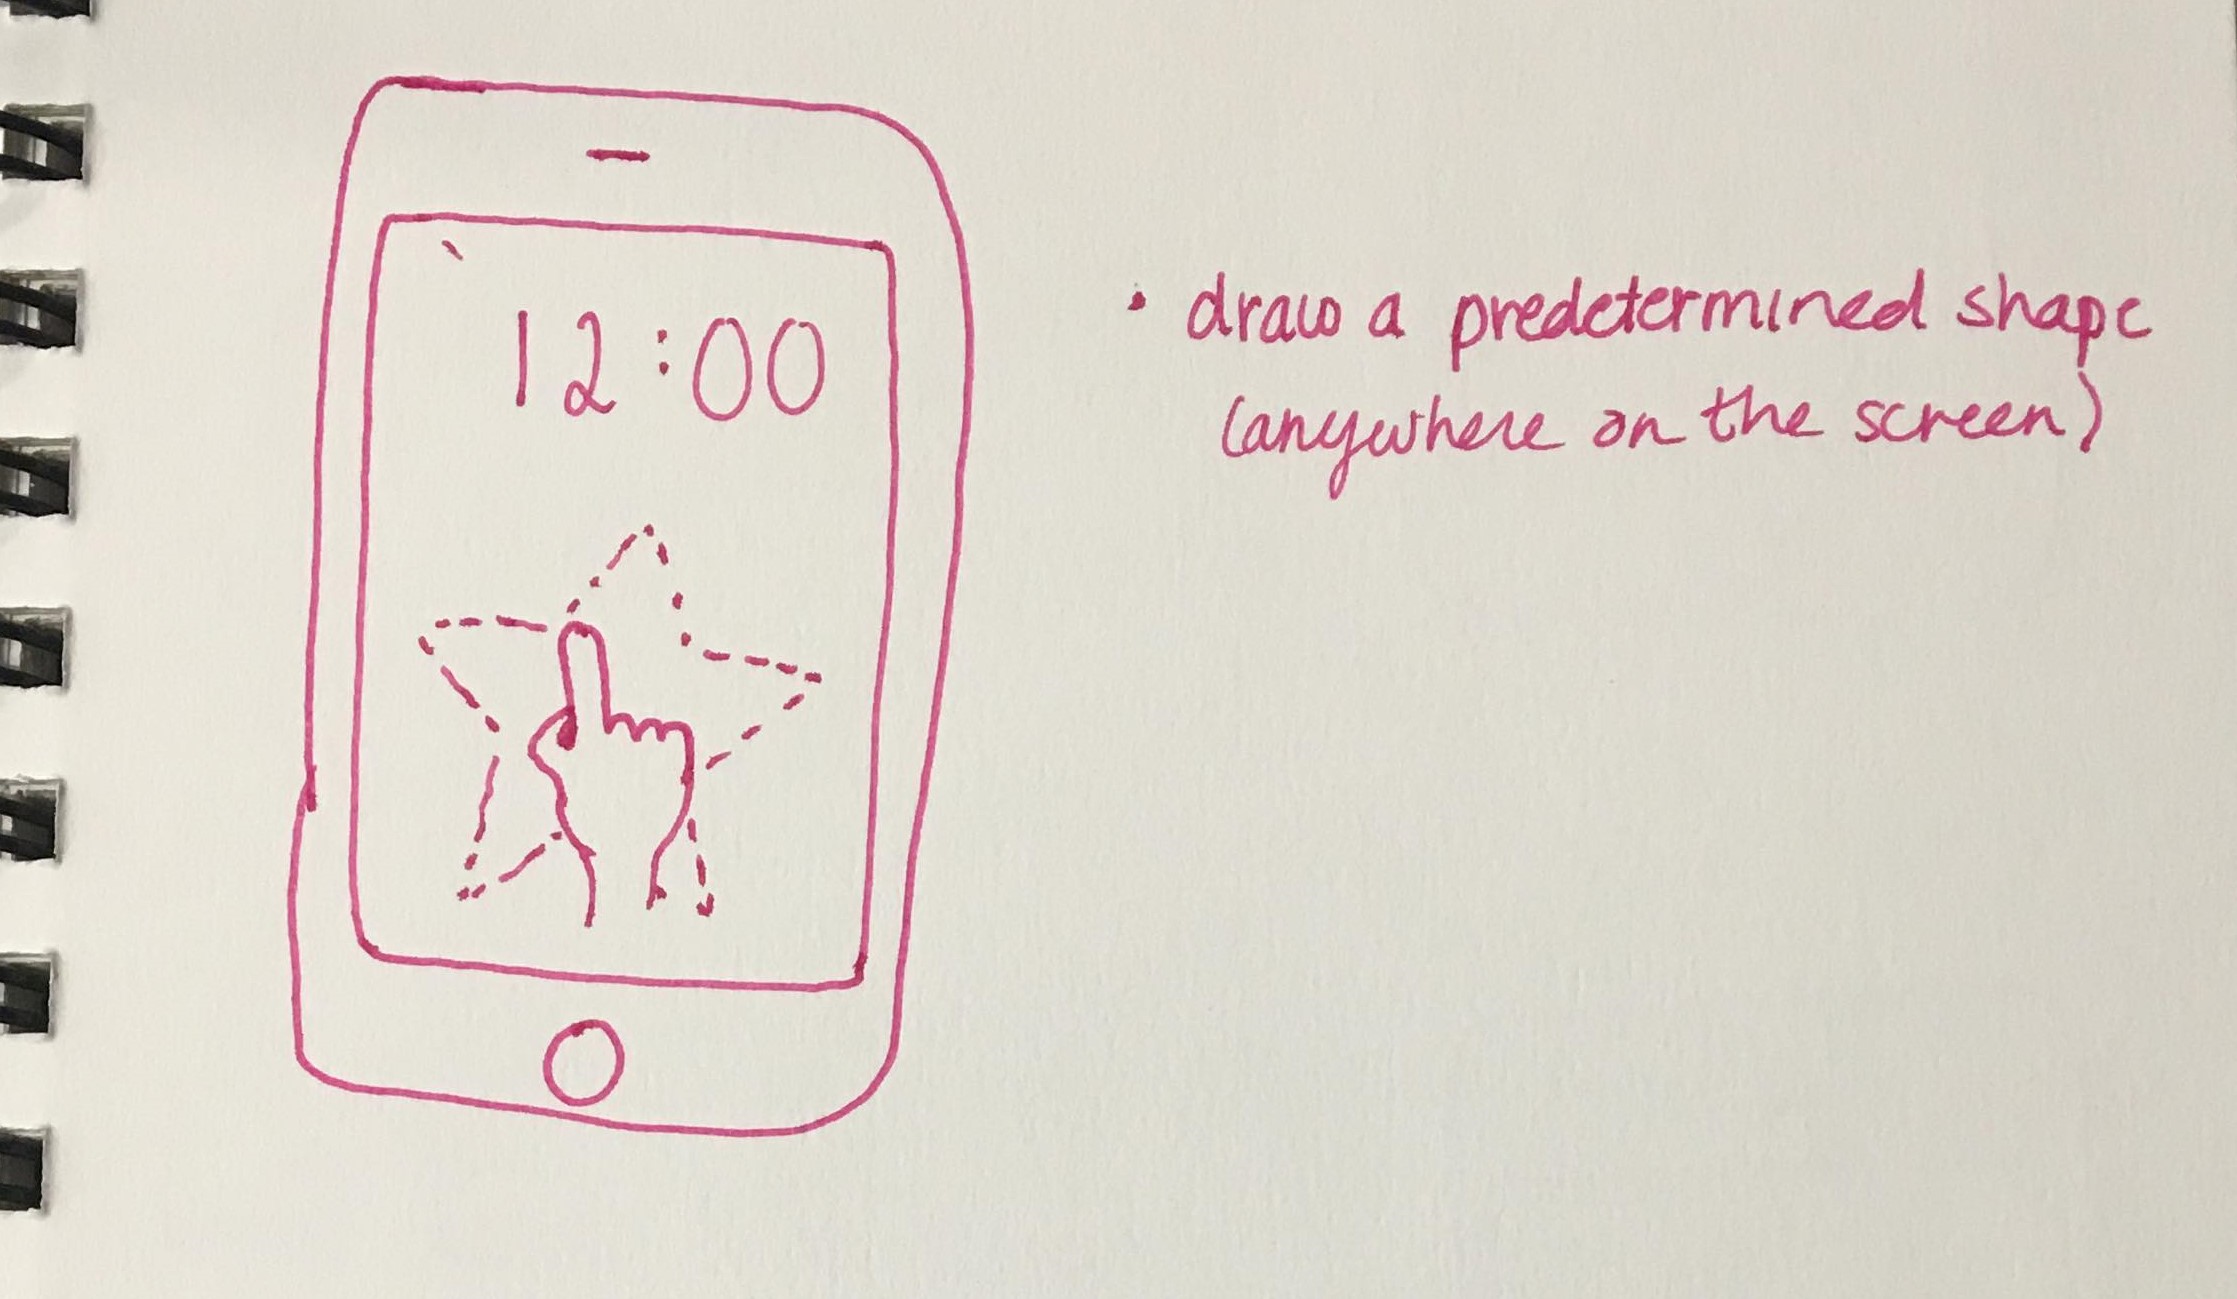 12:00
• draw a predetermined shape
(anywhere on the screen)